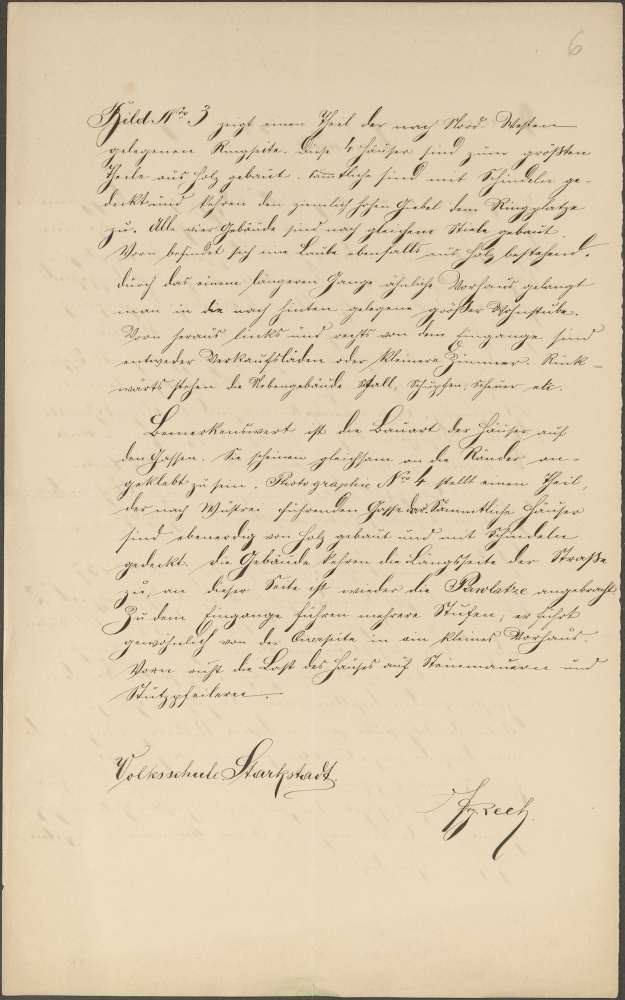 6
Bild Nro 3 zeigt einen Theil der nach Nord-Westen
gelegenen Ringseite. Diese 4 Häuser sind zum größten
Theile aus Holz gebaut. Sämmtliche sind mit Schindeln ge-
deckt und kehren den ziemlich hohen Giebel dem Ringplatze
zu. Alle vier Gebäude sind nach gleichem Stiele gebaut.
Vorn befindet sich eine Laube ebenfalls aus Holz bestehend.
Durch das einem längeren Gange ähnliche Vorhaus gelangt
man in die nach hinten gelegene größere Wohnstube.
Vorn heraus links und rechts von dem Eingange sind
entweder Verkaufsläden oder kleinere Zimmer. Rück-
wärts stehen die Nebengebäude Stall, Schupfen, Scheuer etc.
Bemerkenswert ist die Bauart der Häuser auf
den Gassen. Sie scheinen gleichsam an die Ränder an-
geklebt zu sein. Photographie Nro 4 stellt einen Theil,
der nach Wüstrei führenden Gasse dar. Sämmtliche Häuser
sind ebenerdig von Holz gebaut und mit Schindeln
gedeckt. Die Gebäude kehren die Längsseite der Straße
zu, an dieser Seite ist wieder die angebracht.
Zu dem Eingange führen mehrere Stufen; er führt
gewöhnlich von der Querseite in ein kleines Vorhaus.
Vorn ruht die Last des Hauses auf Steinmauern und
Stützpfeilern.
Volksschule Starkstadt.